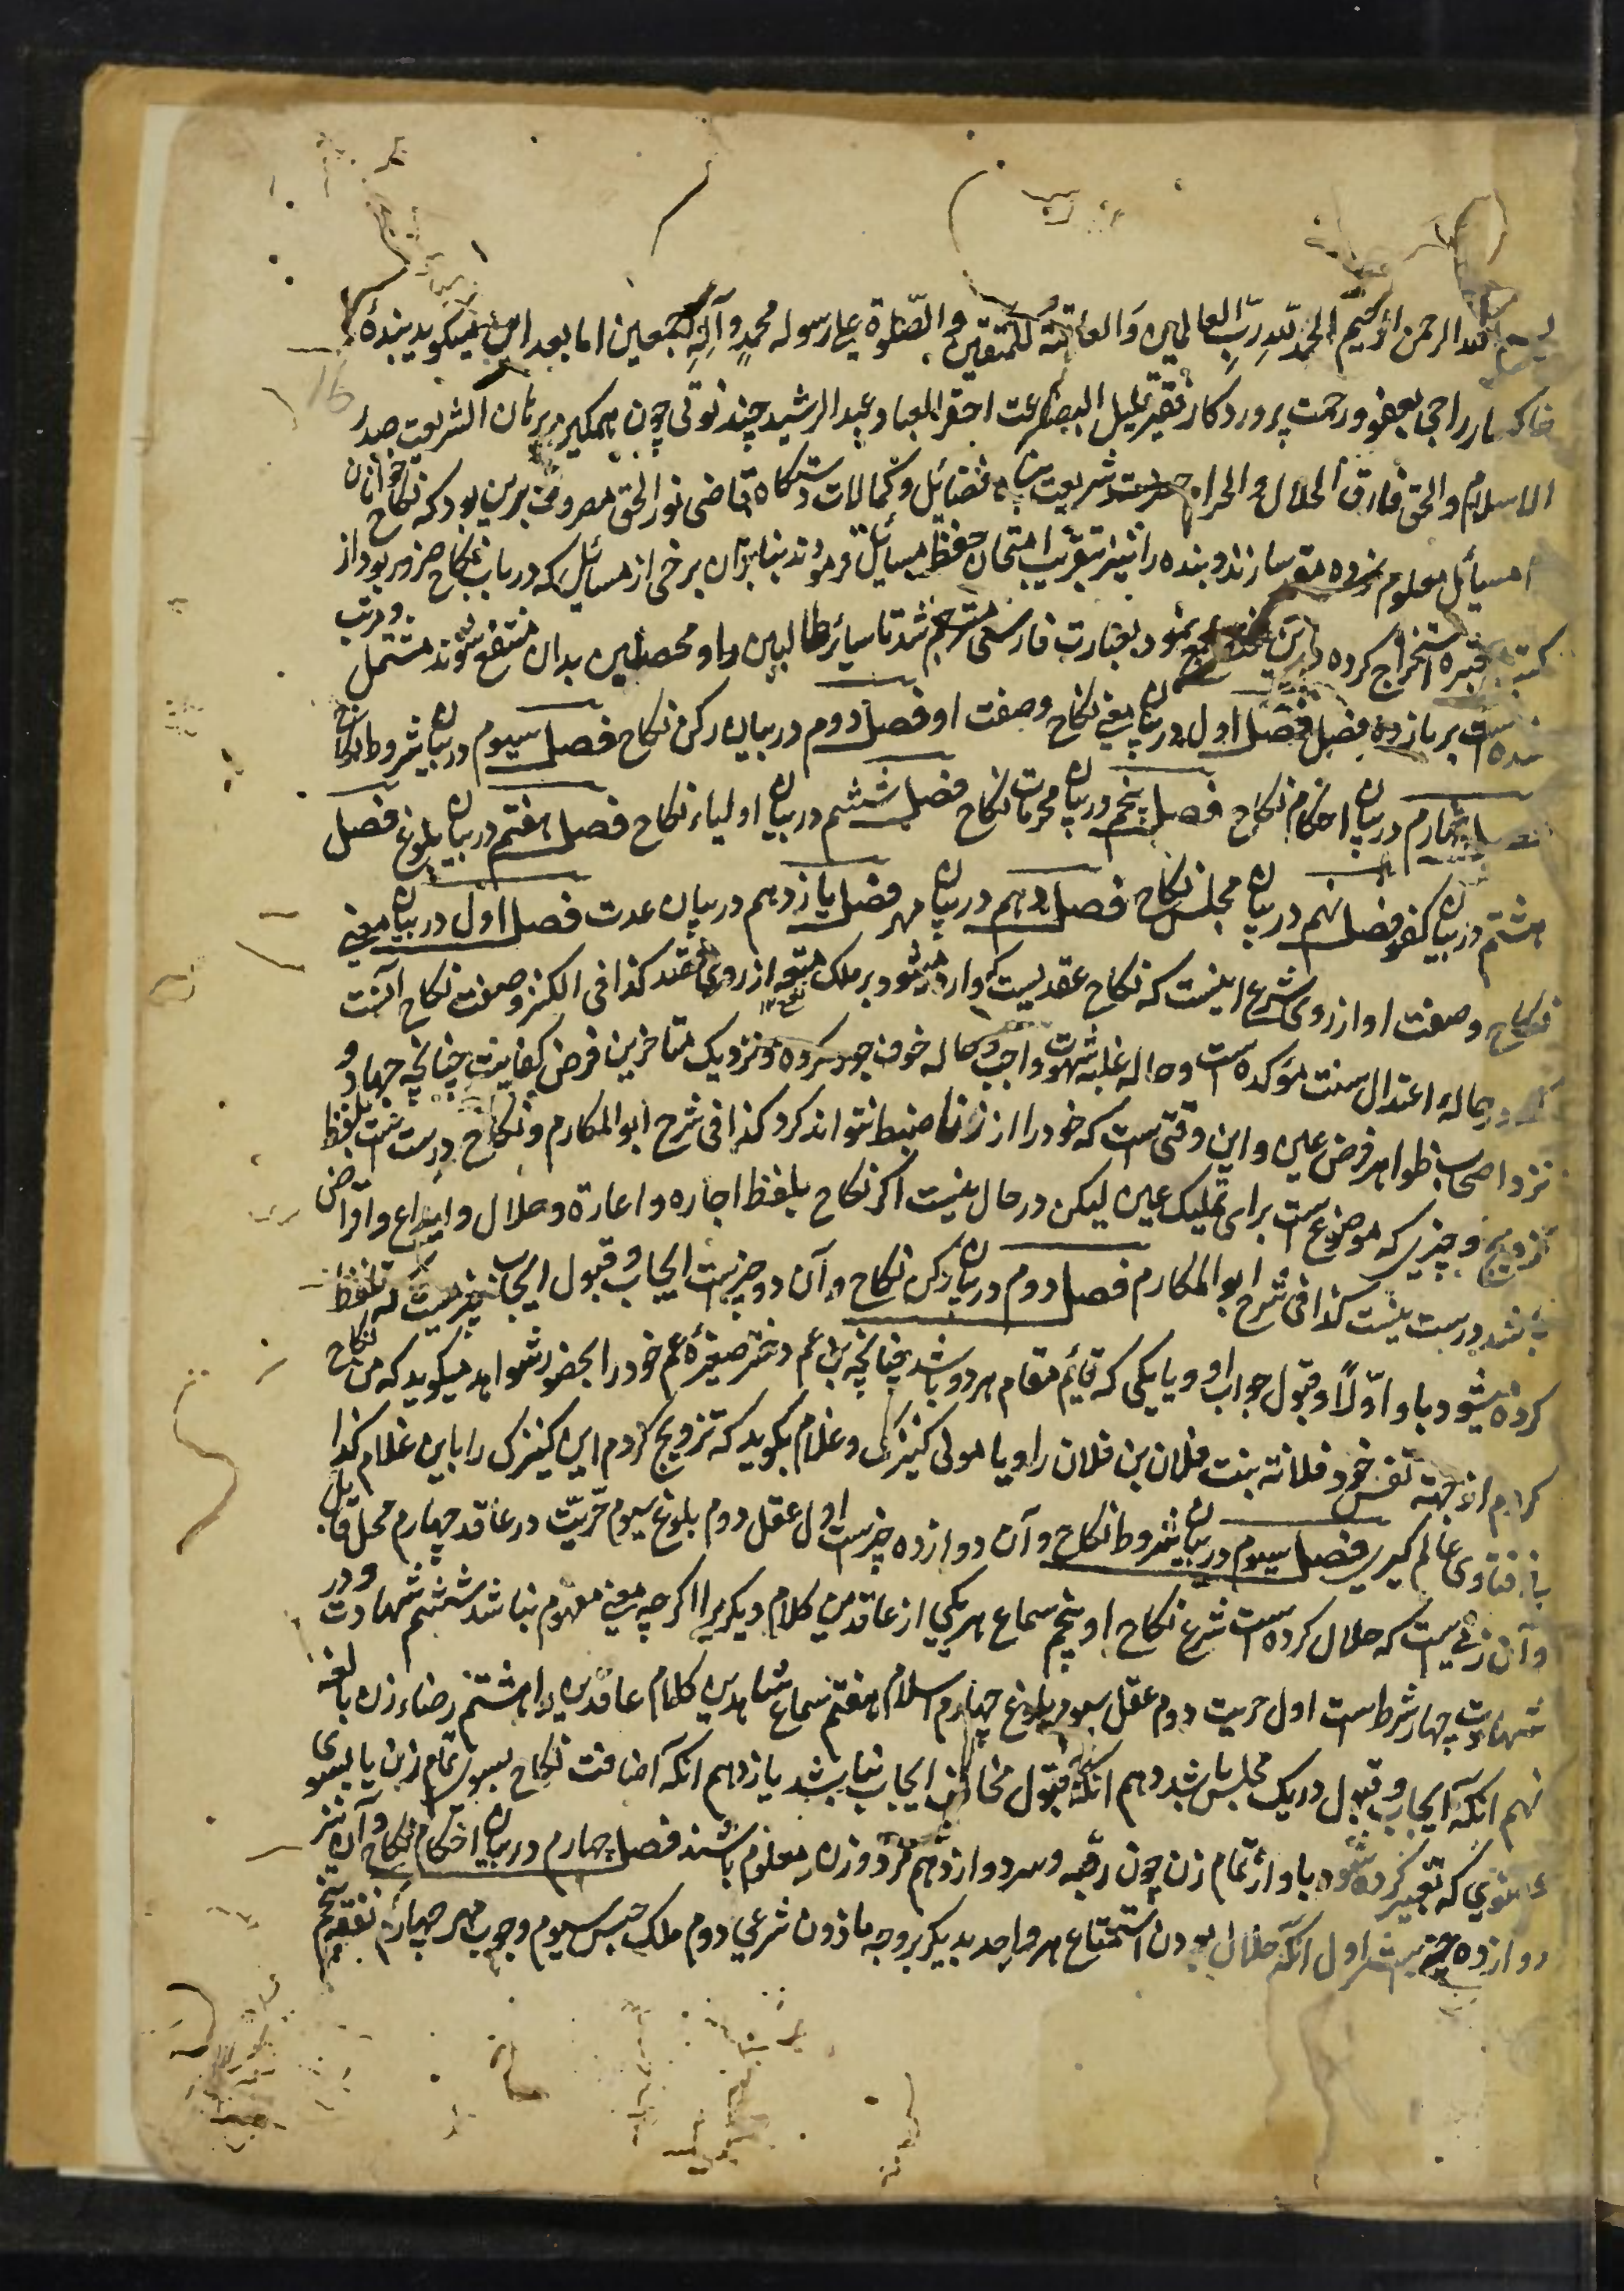 بسم الله الرحمن الرحیم الحمد لله رب العالمین والعاقبة للمتقین والصلوة علی رسوله محمد وآله اجمعین اما بعد این میکوید بندۀ
خاکسار راجی بعفو ورحمت پروردکار فقیر قلیل البضاعت احقر العباد عبد الرشید چند نوتی چون همکیر برهان الشریعت صدر
الاسلام والحق فارق الحلال والحرام حضرت شریعت پناه فضائل وکمالات دستکاه قاضی نور الحق مصروف برین بود که نکاح خوانان
را مسائل معلوم نموده مقرر سازند وبنده را نیز بتقریب امتحان حفظ مسائل فرمودند بنابران برخی از مسائل که در باب نکاح ضرور بود از
کتب معتبره استخراج کرده درین مختصر جمع نمود بعبارت فارسی مترجم شد تا سائر طالبین را ومحصلین بدان منتفع شوند مشتمل ومرتب
شده است بر یازده فصل فصل اول در بیان معنی نکاح وصفت او فصل دوم در بیان رکن نکاح فصل سیوم در بیان شروط نکاح
فصل چهارم در بیان احکام نکاح فصل پنجم در بیان محرمات نکاح فصل ششم در بیان اولیاء نکاح فصل هفتم در بیان بلوغ فصل
هشتم در بیان کفو فصل نهم در بیان مجلس نکاح فصل دهم در بیان مهر فصل یازدهم در بیان عدت فصل اول در بیان معنی
نکاح وصفت او از روی شرع اینست که نکاح عقدیست که وارد میشود بر ملک متعه از روی قصد کذا فی الکنز وصفت نکاح آنست
که در حالۀ اعتدال سنت مؤکده است وحاله غلبه شهوت واجب وحاله خوف جور مکروه ونزدیک متاخرین فرض کفایتت چنانچه جهاد و
نزد اصحاب ظواهر فرض عین واین وقتی است که خود را از زنا ضبط نتواند کرد کذا فی شرح ابو المکارم ونکاح درست است بلفظ
تزویج وچیزی که موضوع است برای تملیک عین لیکن در حال نیست اکر نکاح بلفظ اجاره واعارة وحلال وایداع واقراض
باشد درست نیست کذا فی شرح ابو المکارم فصل دوم در بیان رکن نکاح وآن دو چیزست ایجاب وقبول ایجاب چیزیست که تلفظ
کرده میشود باو اولاً وقبول جواب او ویا یکی که قائم مقام هر دو باشد چنانچه بن عم دختر صغیرۀ عم خود را بحضور شواهد میکوید که من نکاح
کردم از جهته نفس خود فلانه بنت فلان بن فلان را ویا مولی کنیزک وغلام بکوید که تزویج کردم این کنیزک را باین غلام کذا
فی فتاوی عالم کیر فصل سیوم در بیان شروط نکاح وآن دوازده چیزست اول عقل دوم بلوغ سیوم حریّت در عاقد چهارم محل قابل
وآن زنیست که حلال کرده است شرع نکاح او پنجم سماع هر یکی از عاقدین کلام دیکر را اکرچه معنی مفهوم نباشد ششم شهادت ودر
شهادت چهار شرط است اول حریت دوم عقل سیوم بلوغ چهارم اسلام هفتم سماع شاهدین کلام عاقدین را هشتم رضاء زن بالغه
نهم آنکه ایجاب وقبول در یک مجلس باشد دهم آنکه قبول مخالف ایجاب نباشد یازدهم آنکه اضافت نکاح بسوی تمام زن یا بسوی
عضوی که تعبیر کرده شود باو از تمام زن چون رقبه وسر دوازدهم مرد وزن معلوم باشند فصل چهارم در بیان احکام نکاح وآن نیز
دوازده چیزست اول آنکه حلال بودن استمتاع هر واحد بدیکر بر وجه ماذون شرعی دوم ملک حبس سیوم وجوب مهر چهارم نفقه پنجم